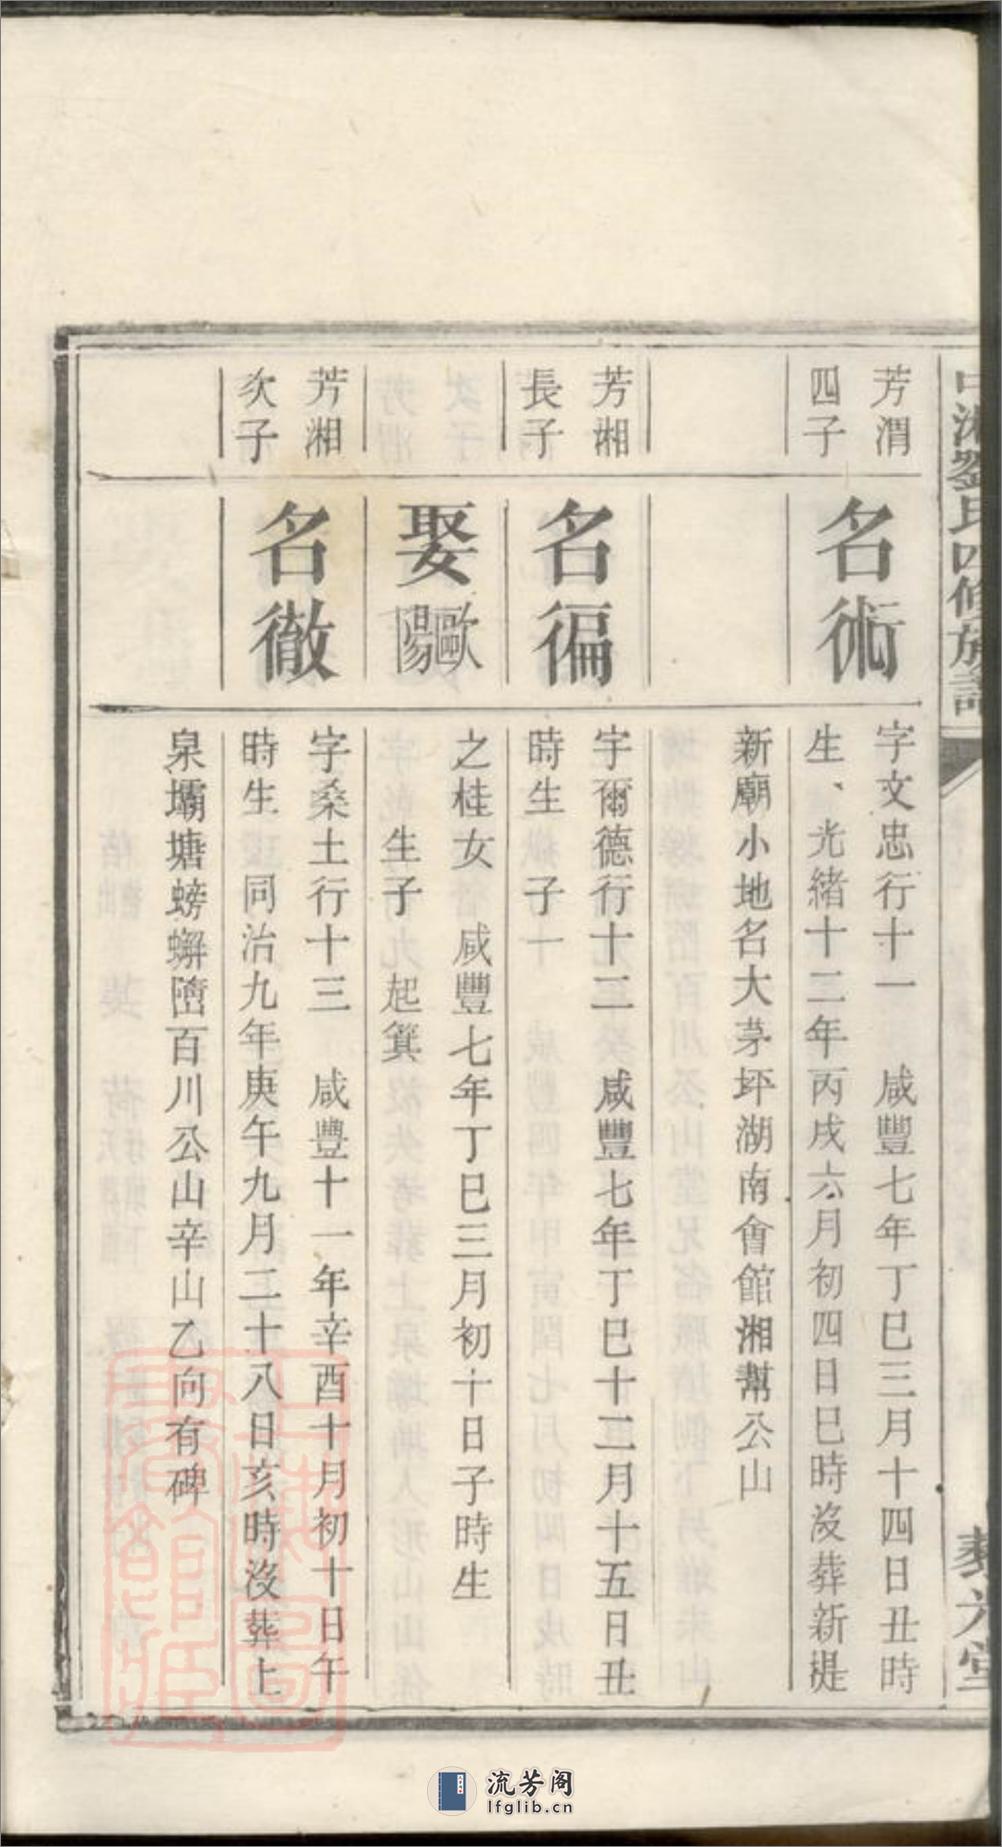 中湘劉氏四修族譜
藜光堂
芳渭
四子
名術
字文忠行十一　咸豐七年丁巳三月十四日丑時
生、光緒十二年丙戌六月初四日巳時沒葬新提
新廟小地名大茅坪湖南會館湘幫公山
芳湘
長子
名徧
字爾德行十二　咸豐七年丁巳十二月十五月丑
時生　子一
娶歐陽
之桂女　咸豐七年丁巳三月初十日子時生
生子　起箕
芳湘
次子
名徹
字桑土行十三　咸豐十一年辛酉十月初十日午
時生同治九年庚午九月二十八日亥時沒葬上
泉壩塘螃蠏百川公山辛山乙向有碑
流芳阁
lfglib.cn